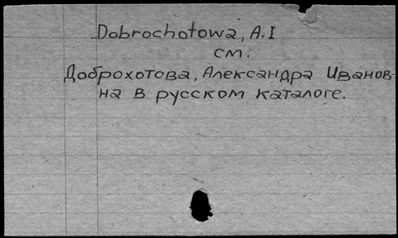 Dobrochotowa, A.I
см.
Доброхотова, Александра Иванов-
на в русском каталоге.